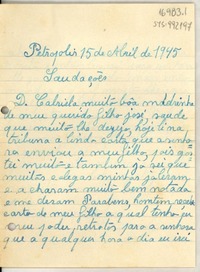 16983.1
Petropolis 15 de Abril de 1945
Saudações
D. Gabriela muito bôa madrinha
de meu querido filho José, saude
que muito lhe desejo, hoje li na
tribuna a linda carta que a senho
ra enviou a meu filho, pois gos
tei muito e tambem já sei que
muitos colegas minhas já leram
e a charam muito bem notada
e me deram Parabens, homtem, recebi
carta de meu filho a qual tenho, eu
meu poder, retratos para a senhora
que a qualquer hora o dia eu irei